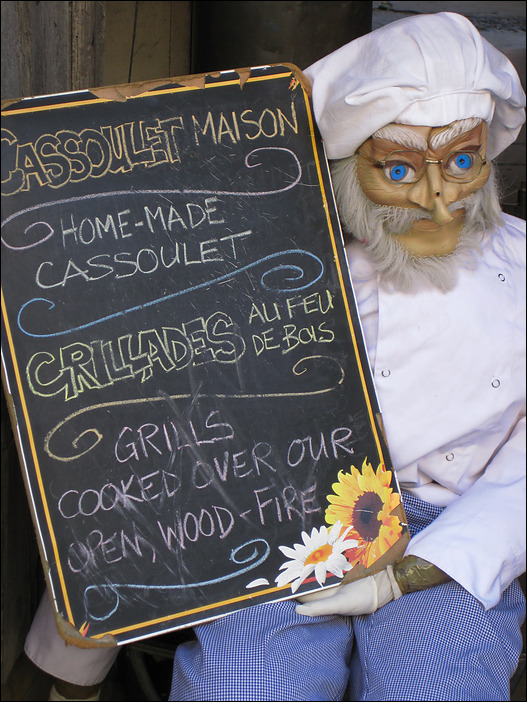 CASSOULET MAISON
HOME-MADE
CASSOULET
GRILLADES AU FEU
DE BOIS
GRILLS
COOKED OVER OUR
OPEN, WOOD-FIRE